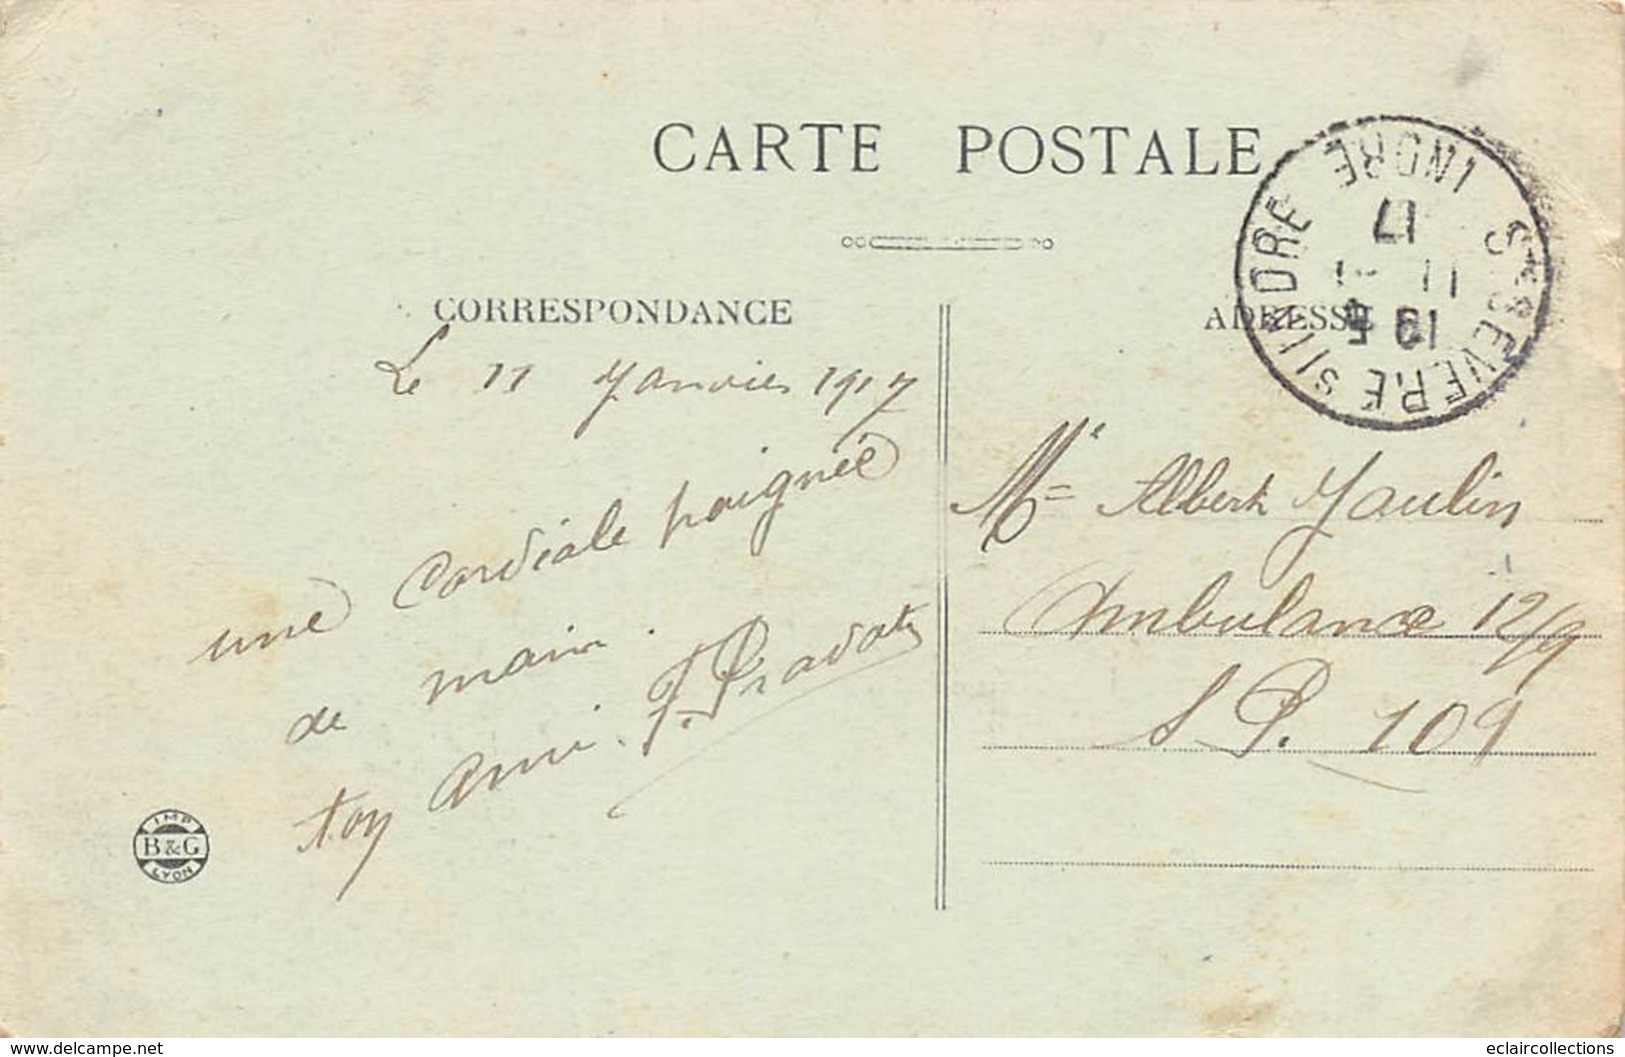 CARTE POSTALE
CORRESPONDANCE
ADRESSE
STE SEVERE S/INDRE INDRE
19 5
11 - 1
17
Le 11 Janvier 1917
une Cordiale poignée
de main.
ton ami. J. Pradat
Mr Albert Jaulin
Ambulance 12/9
S. P. 109
IMP
B&G
LYON
www.delcampe.net
eclaircollections